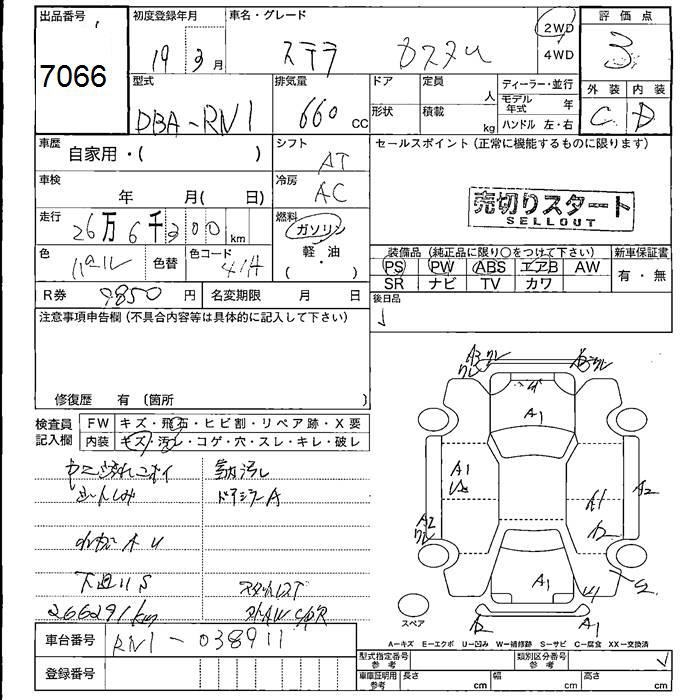 出品番号
7066
初度登録年月
19 3月
車名・グレード
ステラ カスタム
2WD
4WD
評価点
3
外装 内装
C D
型式
DBA-RN1
排気量
660 cc
ドア
形状
定員 人
積載 kg
ディーラー・並行
モデル年式 年
ハンドル 左・右
車歴
自家用・( )
シフト
AT
セールスポイント(正常に機能するものに限ります)
売切りスタート
SELLOUT
車検
年 月( 日)
冷房
AC
走行
26万6千300km
燃料
ガソリン
軽・油
( ・ )
色
パール
色替
色コード
41H
装備品(純正品に限り○をつけて下さい)
PS PW ABS エアB AW
SR ナビ TV カワ
新車保証書
有・無
R券 9850円
名変期限 月 日
後日品
注意事項申告欄(不具合内容等は具体的に記入して下さい)
修復歴 有〔箇所 〕
検査員
記入欄
FW キズ・飛石・ヒビ割・リペア跡・X要
内装 キズ・汚レ・コゲ・穴・スレ・キレ・破レ
室内汚レ
シートしみ
ドアミラーA
下廻りS
266291km
スタットレス
車台番号
RN1-038911
登録番号
A3
クレ
A1
A1
A1
A2
A2
クレ
A1
A1
スペア
A-キズ E-エクボ U-凹み W-補修跡 S-サビ C-腐食 XX-交換済
型式指定番号
参考
類別区分番号
参考
車庫証明用
参考
長さ cm
幅 cm
高さ cm